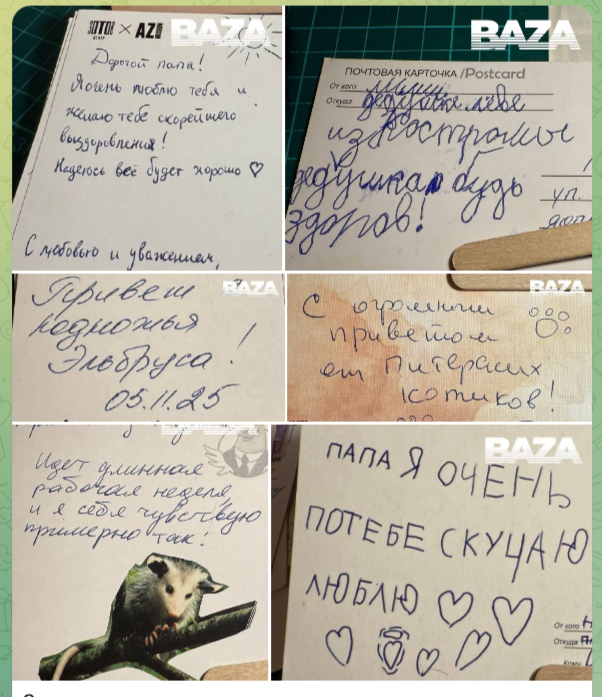 ZOTO!
ЦЕНТР
×
AZ
BAZA
Дорогой папа!
Я очень люблю тебя и
желаю тебе скорейшего
выздоровления!
Надеюсь всё будет хорошо ♡
С любовью и уважением,
BAZA
ПОЧТОВАЯ КАРТОЧКА /Postcard
От кого
Откуда дедушке лёве
из Костромы
дедушка будь
здоров!
ул.
BAZA
Привет
подножья
Эльбруса!
05.11.25
BAZA
С огромным
приветом
от Питерских
котиков!
Идет длинная
рабочая неделя,
и я себя чувствую
примерно так!
BAZA
ПАПА Я ОЧЕНЬ
ПОТЕБЕ СКУЧАЮ
ЛЮБЛЮ ♡ ♡
♡ ♡ ♡ ♡
От кого
Откуда
Кому